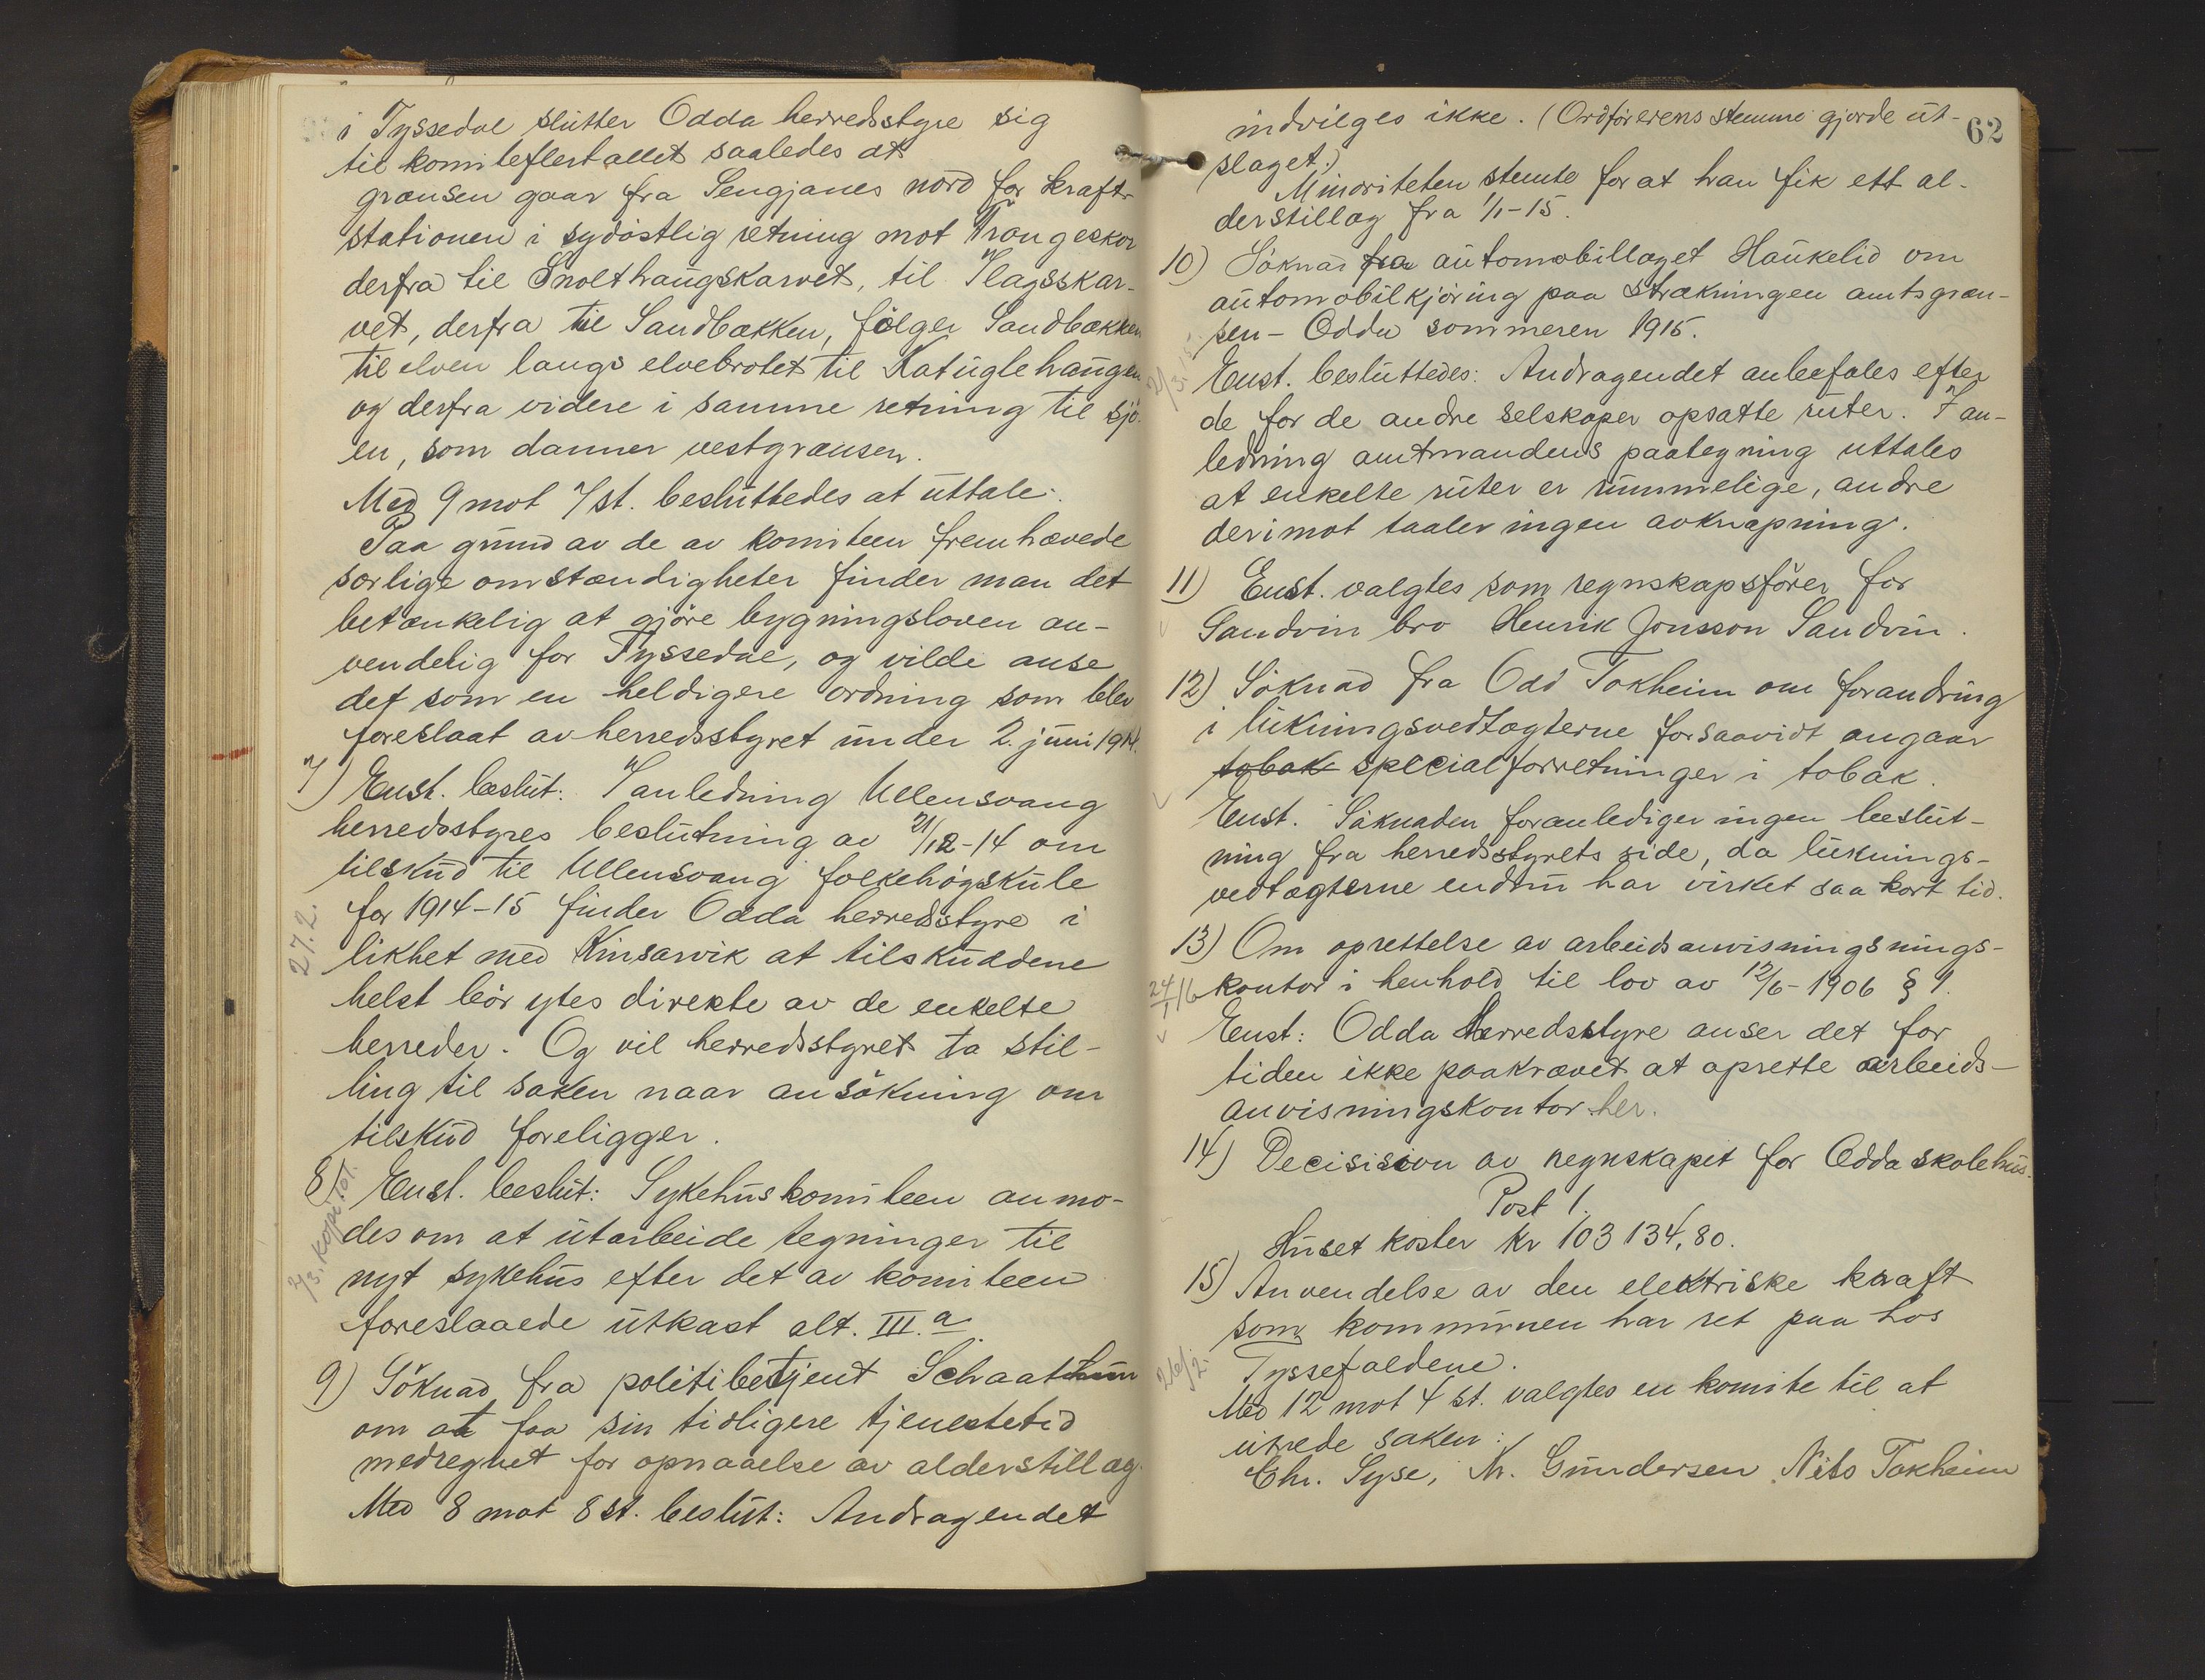 i Tyssedal slutter Odda herredsstyre sig
til komiteflertallet saaledes at
grænsen gaar fra Sengjanes nord for kraft-
stationen i sydöstlig retning mot Trangeskor
derfra til Snolthaugskarvet, til Flagsskar-
vet, derfra til Sandbækken, fölger Sandbækken
til elven langs elvebrotet til Katuglehaugen
og derfra videre i samme retning til sjö-
en, som danner vestgrænsen.
Med 9 mot 7 st. besluttedes at uttale:
Paa grund av de av komiteen fremhævede
særlige omstændigheter finder man det
betænkelig at gjöre bygningsloven an-
vendelig for Tyssedal, og vilde anse
det som en heldigere ordning som blev
foreslaat av herredsstyret under 2. juni 1914.
7) Enst. beslut: I anledning Ullensvang
herredsstyres beslutning av 21/12-14 om
tilskud til Ullensvang folkehögskule
for 1914-15 finder Odda herredsstyre i
27.2.
likhet med Kinsarvik at tilskuddene
helst bör ytes direkte av de enkelte
herreder. Og vil herredsstyret ta stil-
ling til saken naar ansökning om
tilskud foreligger.
8) Enst. beslut: Sykehuskomiteen anmo-
des om at utarbeide tegninger til
nyt sykehus efter det av komiteen
foreslaaede utkast alt. III.a
9) Söknad fra politibetjent Schaathun
om at faa sin tidligere tjenestetid
medregnet for opnaaelse av alderstillæg.
Med 8 mot 8 st. beslut: Andragendet
62
indvilges ikke. (Ordförerens stemme gjorde ut-
slaget.)
Minoriteten stemte for at han fik ett al-
derstillæg fra 1/1-15.
10) Söknad fra automobillaget Haukelid om
automobilkjöring paa strækningen amtsgræn-
sen - Odda sommeren 1915.
Enst. besluttedes: Andragendet anbefales efter
de for de andre selskaper opsatte ruter. I an-
ledning amtmandens paategning uttales
at enkelte ruter er rummelige, andre
derimot taaler ingen avknapning.
11) Enst. valgtes som regnskapsförer for
Sandvin bro Henrik Jonsson Sandvin.
12) Söknad fra Odd Tokheim om forandring
i likningsvedtægterne forsaavidt angaar
tobak specialforretninger i tobak.
Enst. Söknaden foranlediger ingen beslut-
ning fra herredsstyrets side, da liknings-
vedtægterne endnu har virket saa kort tid.
13) Om oprettelse av arbeidsanvisningsnings-
24/1 16 kontor i henhold til lov av 12/6-1906 § 1.
Enst: Odda Herredsstyre anser det for
tiden ikke paakrævet at oprette arbeids-
anvisningskontor her.
14) Decisision av regnskapet for Odda skolehus.
Post 1.
Huset koster kr 103 134,80.
15) Anvendelse av den elektriske kraft
som kommunen har ret paa hos
26/2.
Tyssefaldene.
Med 12 mot 4 st. valgtes en komite til at
utrede saken:
Chr. Syse, N. Gundersen, Nils Tokheim